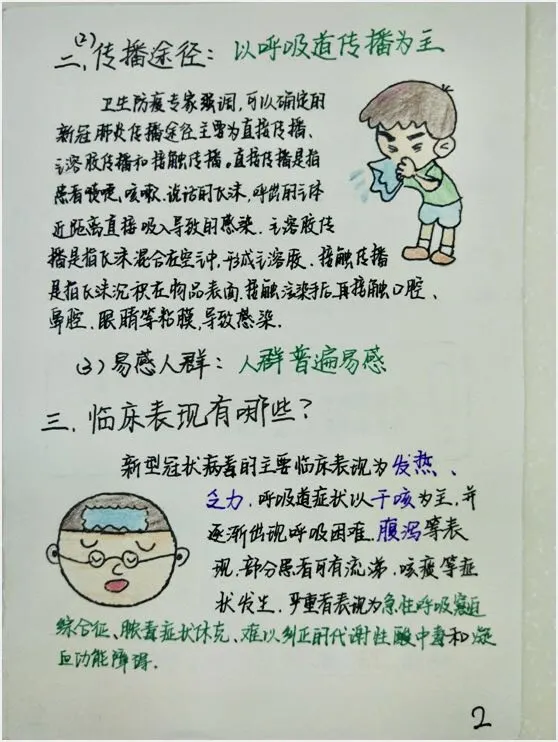 (2)
二、传播途径：以呼吸道传播为主
卫生防疫专家强调，可以确定的
新冠肺炎传播途径主要为直接传播、
气溶胶传播和接触传播。直接传播是指
患者喷嚏、咳嗽、说话的飞沫，呼出的气体
近距离直接吸入导致的感染。气溶胶传
播是指飞沫混合在空气中，形成气溶胶。接触传播
是指飞沫沉积在物品表面，接触污染手后，再接触口腔、
鼻腔、眼睛等粘膜，导致感染.
(3)易感人群：人群普遍易感
三、临床表现有哪些？
新型冠状病毒的主要临床表现为发热、
乏力，呼吸道症状以干咳为主，并
逐渐出现呼吸困难，腹泻等表
现，部分患者可有流涕，咳痰等症
状发生，严重者表现为急性呼吸窘迫
综合征、脓毒症状休克、难以纠正的代谢性酸中毒和凝
血功能障碍.
2